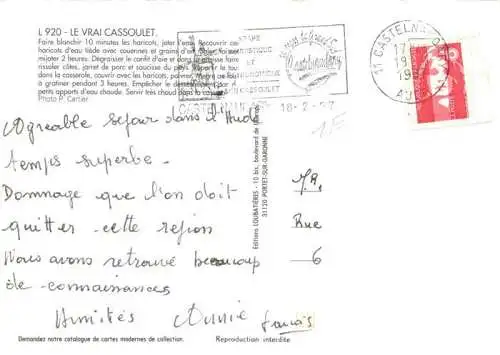 L 920 - LE VRAI CASSOULET.
Faire blanchir 10 minutes les haricots, jeter l'eau. Recouvrir ces
haricots d'eau tiède avec couennes et grains d'ail. Laisser
mijoter 2 heures. Dégraisser l'oie et dans la graisse faire
rissoler côtes, jarret de porc et saucisse du pays. Répartir le tout
dans la casserole, couvrir avec les haricots, poivrer. Mettre au four
à gratiner pendant 3 heures. Empêcher le dessèchement par
petits apports d'eau chaude. Servir très chaud dans la
Photo P. Cartier
CASSOULET
CASTELNAUDARY 18-2-97
11 CASTELNAUDARY
17
19
AUDE
1€
Agreable sejour dans l'Aude
temps superbe.
Dommage que l'on doit
quitter cette region
Nous avons retrouvé beaucoup
de connaissances
Amitiés Annie Francis
Editions LOUBATIÈRES - 10 bis, boulevard de
31120 PORTET-SUR-GARONNE
Rue
6
Demandez notre catalogue de cartes modernes de collection.
Reproduction interdite